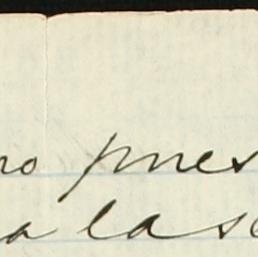 no pues
a la se